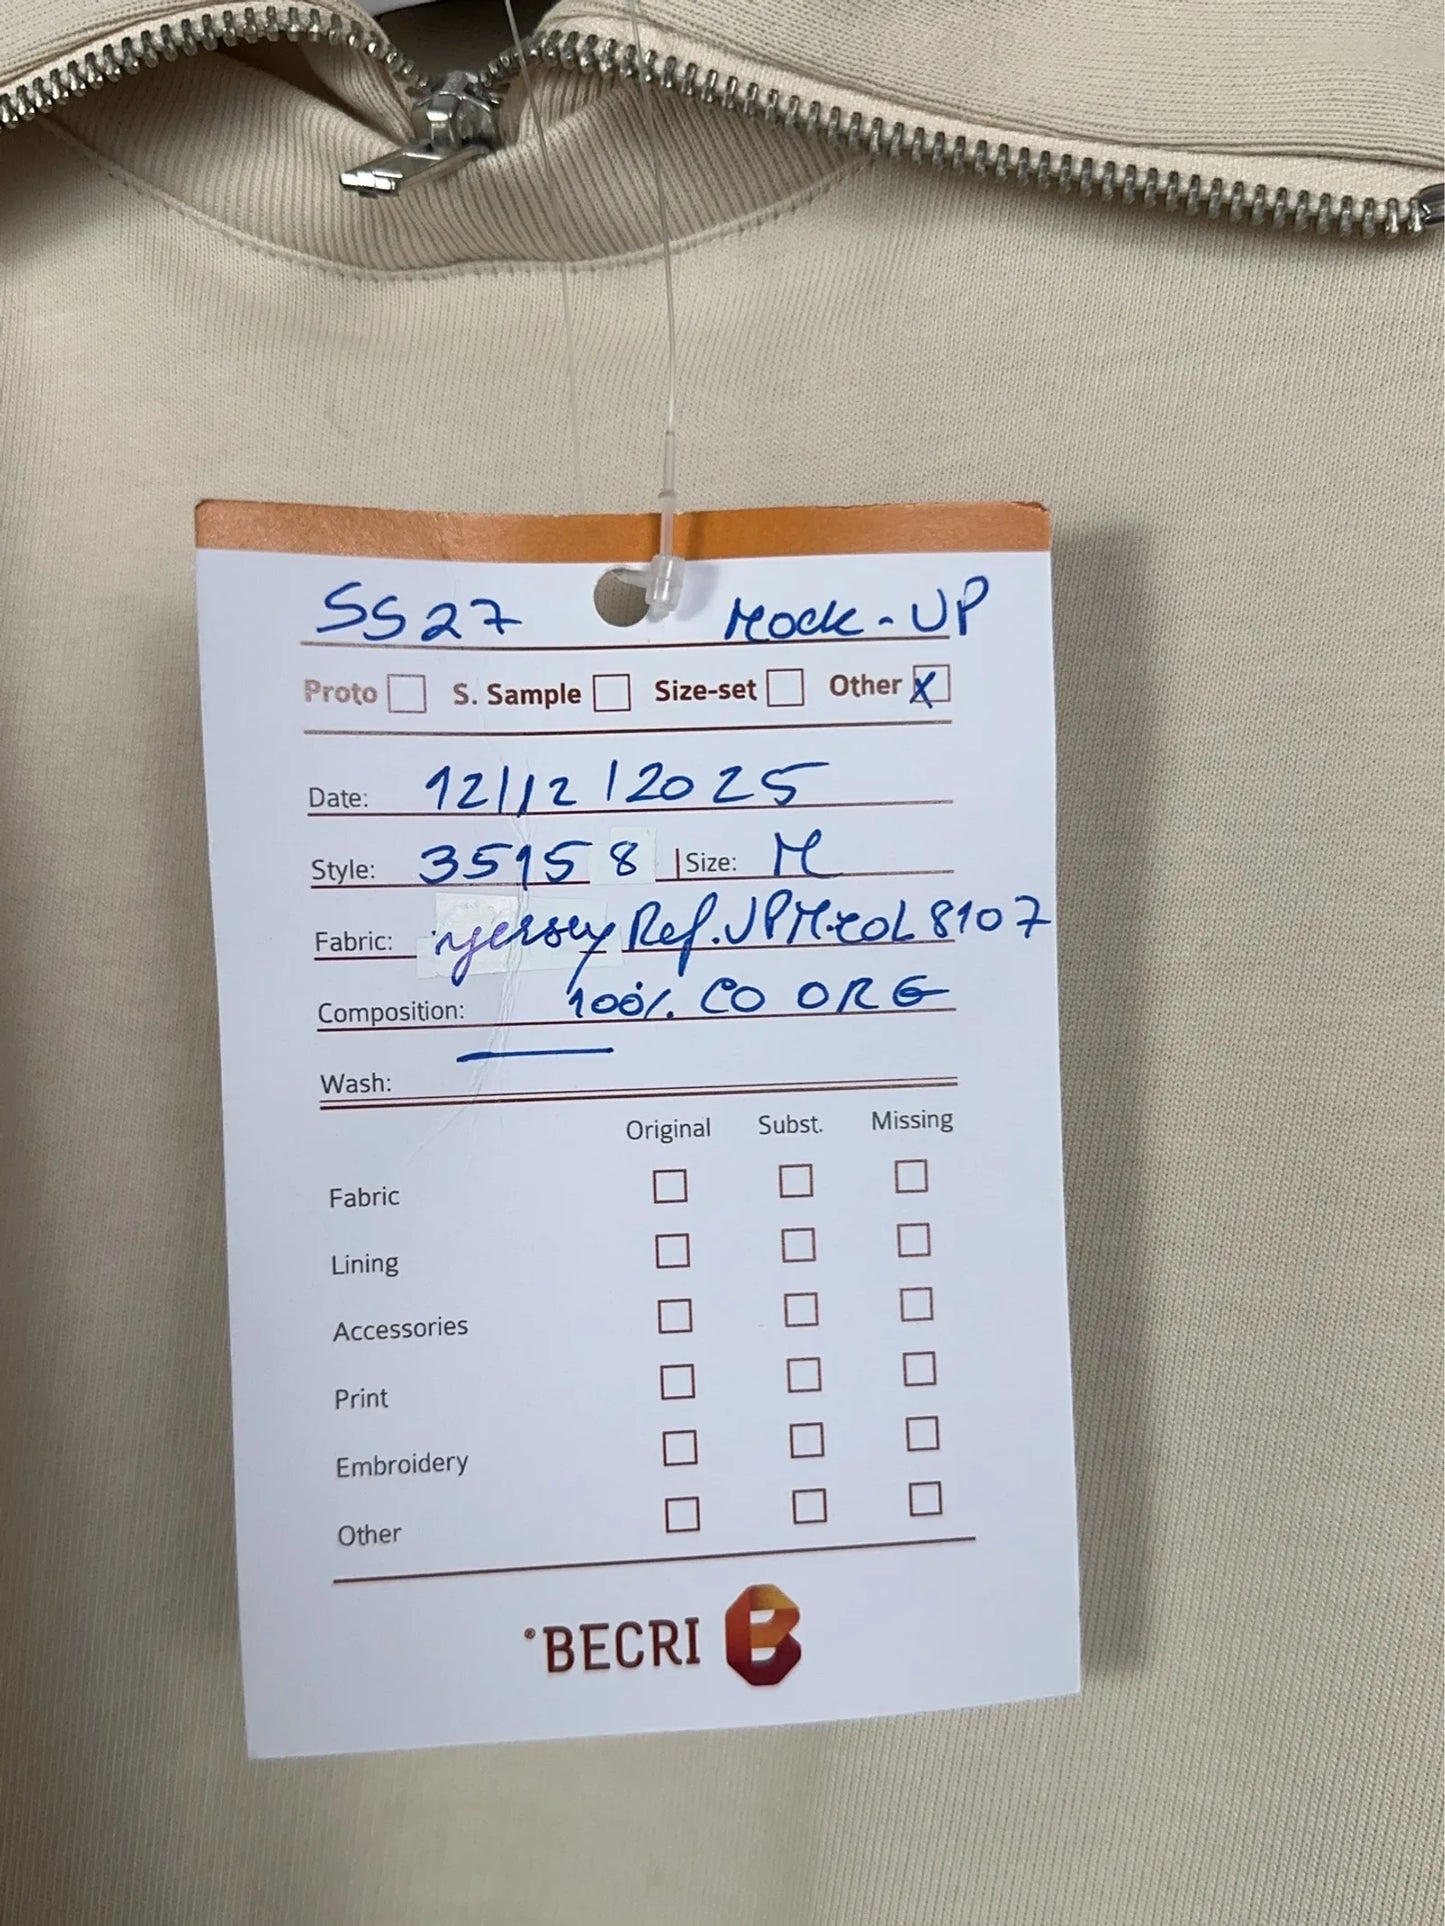 SS27 Mock-UP
Proto S. Sample Size-set Other X
Date: 12/12/2025
Style: 35158 Size: M
Fabric: Jersey Ref. JPM.COL 8107
Composition: 100% CO ORG
Wash:
Original Subst. Missing
Fabric
Lining
Accessories
Print
Embroidery
Other
®BECRI B